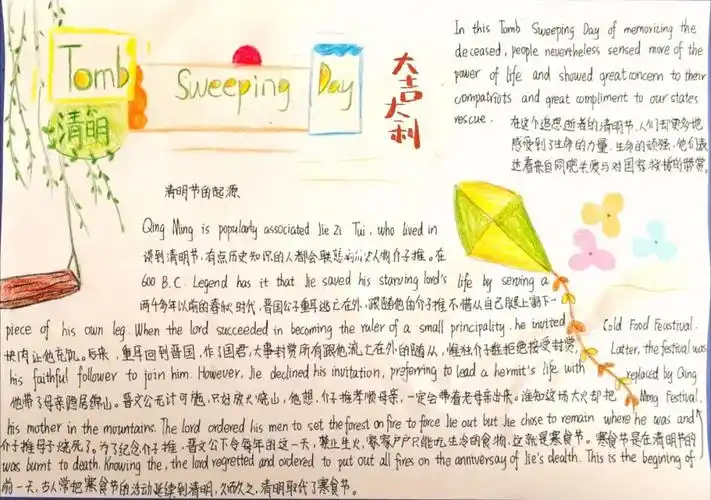 Tomb Sweeping Day
清明
大吉大利
In this Tomb Sweeping Day of memorizing the
deceased, people nevertheless sensed more of the
power of life and showed great concern to their
compatriots and great compliment to our states
rescue.
在这个追思逝者的清明节,人们却更多地
感受到了生命的力量,生命的顽强,他们表
达着来自同胞关爱与对国家救援的赞赏。
清明节的起源
Qing Ming is popularly associated Jie Zi Tui, who lived in
谈到清明节,有点历史知识的人都会联想到历史人物介子推。在
600 B.C. Legend has it that Jie saved his starving lord's life by serving a
两千多年以前的春秋时代,晋国公子重耳逃亡在外,跟随他的介子推不惜从自己腿上割下一
piece of his own leg. When the lord succeeded in becoming the ruler of a small principality, he invited
块肉让他充饥。后来,重耳回到晋国,作了国君,大事封赏所有跟他流亡在外的随从,惟独介子推拒绝接受封赏,
his faithful follower to join him. However, Jie declined his invitation, preferring to lead a hermit's life with
他带了母亲隐居绵山。晋文公无计可施,只好放火烧山,他想,介子推孝顺母亲,一定会带着老母亲出来。谁知这场大火却把
his mother in the mountains. The lord ordered his men to set the forest on fire to force Jie out but Jie chose to remain where he was and
介子推母子烧死了。为了纪念介子推,晋文公下令每年的这一天,禁止生火,家家户户只能吃生冷的食物,这就是寒食节。寒食节是在清明节的
was burnt to death. Knowing the, the lord regretted and ordered to put out all fires on the anniversay of Jie's dealth. This is the begening of
前一天,古人常把寒食节的活动延续到清明,久而久之,清明取代了寒食节。
Cold Food Feastival.
Latter, the festival was
replaced by Qing
Ming Festival.